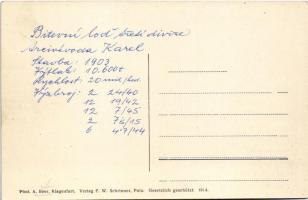 Bitevní loď třetí divize
Arcivévoda Karel
Stavba: 1903
Výtlak: 10.600t
Rychlost: 20 mil/hod.
Výzbroj: 2 24/40
12 19/42
12 7/45
2 76/15
6 47/44
Phot. A. Beer, Klagenfurt. Verlag F. W. Schrinner, Pola. Gesetzlich geschützt. 1914.